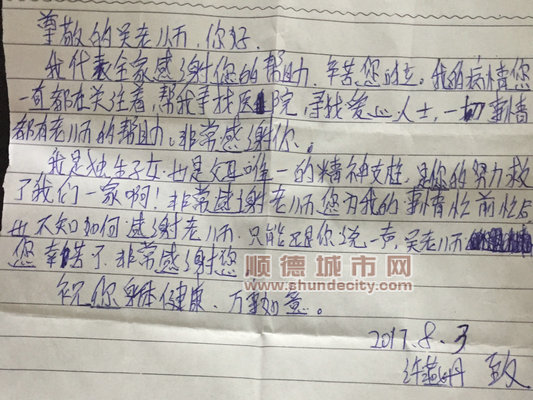 尊敬的吴老师,你好.
我代表全家感谢您的帮助.辛苦您啦.我的病情您
一直都在关注着,帮我寻找医院,寻找爱心人士,一切事情
都有老师的帮助.非常感谢你.
我是独生子女.也是父母唯一的精神支柱.是你的努力救
了我们一家啊!非常感谢老师您为我的事情忙前忙后
也不知如何感谢老师.只能还是你说一声,吴老师
您辛苦了.非常感谢您
祝你身体健康、万事如意。
顺德城市网
www.shundecity.com
2017.8.3
许 丹 致